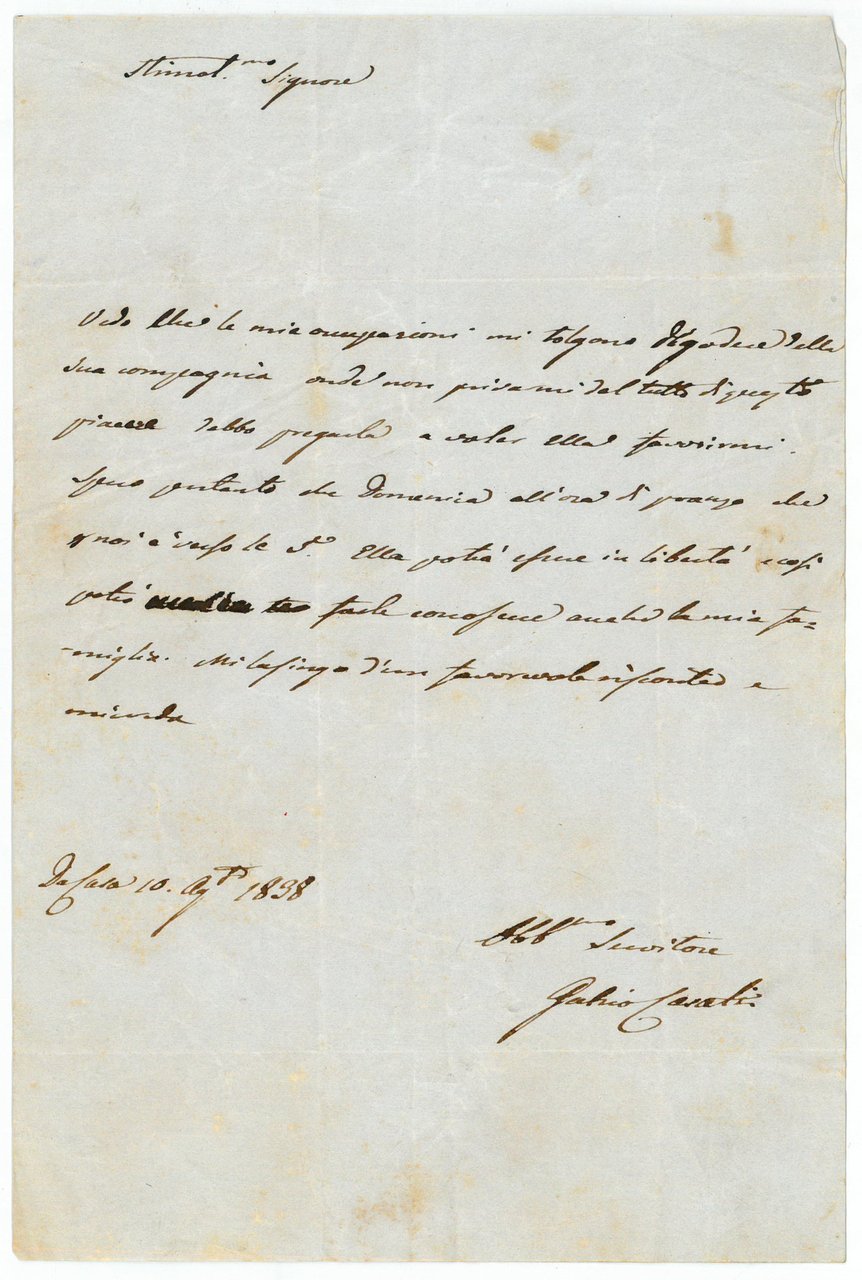 Stimat.mo Signore
Vedo che le mie occupazioni mi tolgono di godere della
sua compagnia onde non privarmi del tutto di questo
piacere debbo pregarla a voler ella favorirmi.
Spero pertanto che Domenica all'ora di pranzo che
noi è verso le 5. Ella potrà essere in libertà e così
potrò farle conoscere anche la mia fa=
-miglia. Mi lusingo d'un favorevole riscontro e
mi creda
Da Casa 10. Ag.to 1838
Obb.mo Servitore
Gabrio Casati